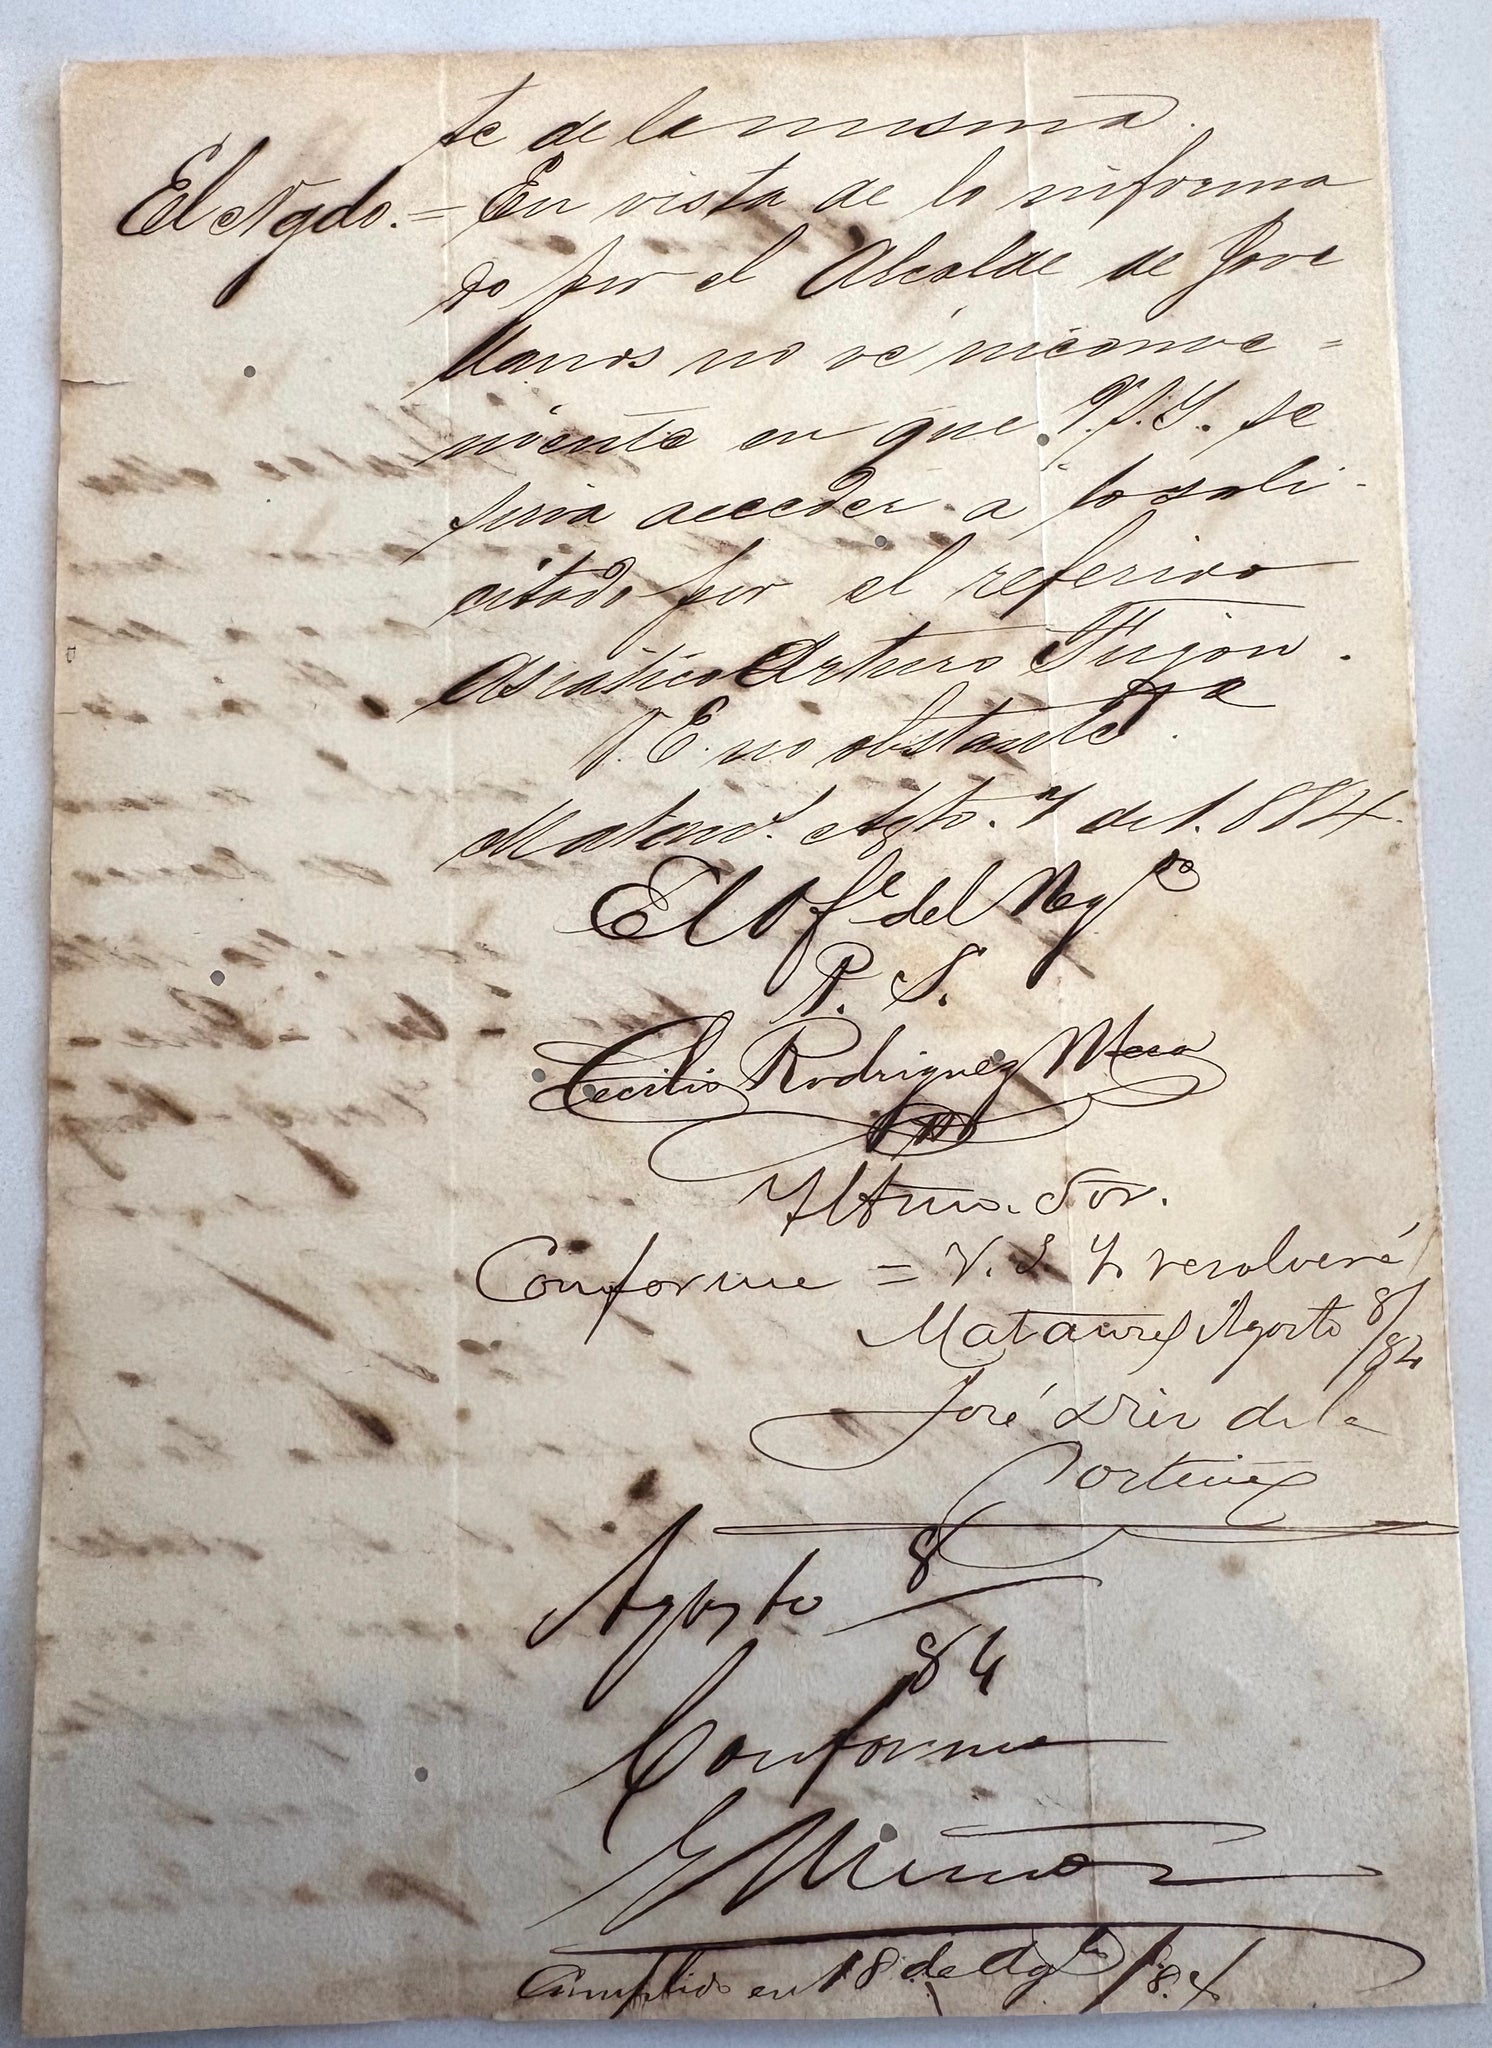 te de la misma.
El Ngdo. = En vista de lo informa
do por el Alcalde de Jove
llanos no vé inconve =
niente en que V.S.Y. se
sirva acceder a lo soli -
citado por el referido
Asiático Arturo
V.E. no obstante
Matanz.s Agto. 7 de 1.884.
El Of.l del Neg.do
P. S.
Cecilio Rodriguez
Yltmo. Sor.
Conforme = V. S. Y. resolverá
Matanzas Agosto 8/84
José de la
Agosto 8/84
Conforme
Muñoz
Cumplido en 18 de Agto /84